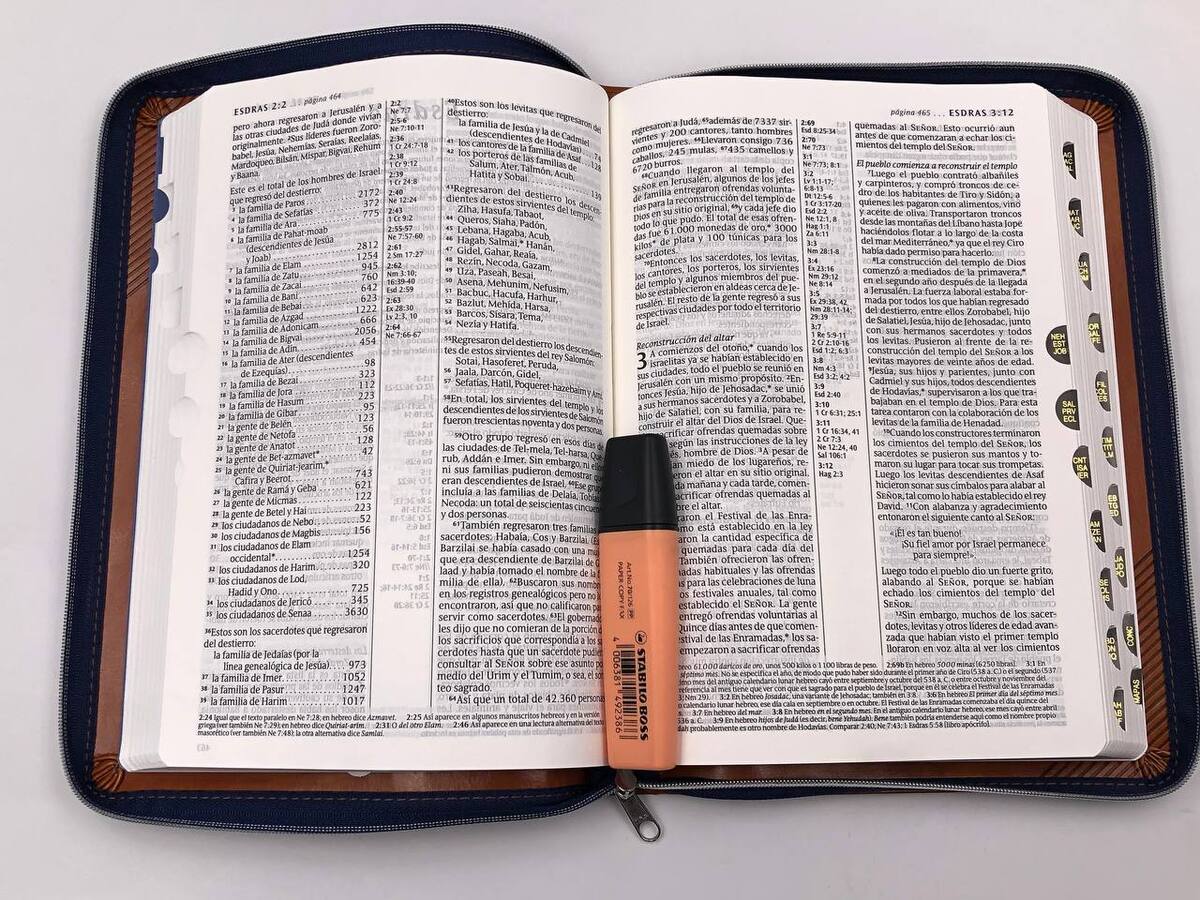 ESDRAS 2:2 página 464
pero ahora regresaron a Jerusalén y a
las otras ciudades de Judá donde vivían
originalmente. ²Sus líderes fueron Zoro-
babel, Jesúa, Nehemías, Seraías, Reelaías,
Mardoqueo, Bilsán, Mispar, Bigvai, Rehum
y Baana.
Este es el total de los hombres de Israel
que regresó del destierro:
3 la familia de Paros 2172
4 la familia de Sefatías 372
5 la familia de Ara 775
6 la familia de Pahat-moab
(descendientes de Jesúa
y Joab) 2812
7 la familia de Elam 1254
8 la familia de Zatu 945
9 la familia de Zacai 760
10 la familia de Bani 642
11 la familia de Bebai 623
12 la familia de Azgad 1222
13 la familia de Adonicam 666
14 la familia de Bigvai 2056
15 la familia de Adín 454
16 la familia de Ater (descendientes
de Ezequías) 98
17 la familia de Bezai 323
18 la familia de Jora 112
19 la familia de Hasum 223
20 la familia de Gibar 95
21 la gente de Belén 123
22 la gente de Netofa 56
23 la gente de Anatot 128
24 la gente de Bet-azmavet* 42
25 la gente de Quiriat-jearim,*
Cafira y Beerot 743
26 la gente de Ramá y Geba 621
27 la gente de Micmas 122
28 la gente de Betel y Hai 223
29 los ciudadanos de Nebo 52
30 los ciudadanos de Magbis 156
31 los ciudadanos de Elam
occidental* 1254
32 los ciudadanos de Harim 320
33 los ciudadanos de Lod,
Hadid y Ono 725
34 los ciudadanos de Jericó 345
35 los ciudadanos de Senaa 3630
³⁶Estos son los sacerdotes que regresaron
del destierro:
la familia de Jedaías (por la
línea genealógica de Jesúa) 973
37 la familia de Imer 1052
38 la familia de Pasur 1247
39 la familia de Harim 1017
2:2
Ne 7:7
2:5-6
Ne 7:10-11
2:36
1 Cr 24:7-18
2:38
1 Cr 9:12
2:39
1 Cr 24:8
2:40
Ne 12:24
2:43
1 Cr 9:2
2:55-57
Ne 7:57-60
2:61
2 Sm 17:27
2:62
Nm 3:10;
16:39-40
Esd 2:59
2:63
Ex 28:30
Lv 2:3, 10
2:64
Ne 7:66-67
⁴⁰Estos son los levitas que regresaron del
destierro:
la familia de Jesúa y la de Cadmiel
(descendientes de Hodavías) 74
41 los cantores de la familia de Asaf 128
42 los porteros de las familias de
Salum, Ater, Talmón, Acub,
Hatita y Sobai 139
⁴³Regresaron del destierro los descen-
dientes de estos sirvientes del templo:
Ziha, Hasufa, Tabaot,
44 Queros, Siaha, Padón,
45 Lebana, Hagaba, Acub,
46 Hagab, Salmai,* Hanán,
47 Gidel, Gahar, Reaía,
48 Rezín, Necoda, Gazam,
49 Uza, Paseah, Besai,
50 Asena, Mehunim, Nefusim,
51 Bacbuc, Hacufa, Harhur,
52 Bazlut, Mehída, Harsa,
53 Barcos, Sísara, Tema,
54 Nezía y Hatifa.
⁵⁵Regresaron del destierro los descendien-
tes de estos sirvientes del rey Salomón:
Sotai, Hasoferet, Peruda,
56 Jaala, Darcón, Gidel,
57 Sefatías, Hatil, Poqueret-hazebaim y Ami.
⁵⁸En total, los sirvientes del templo y los
descendientes de los sirvientes de Salomón
fueron trescientas noventa y dos personas.
⁵⁹Otro grupo regresó en esos días de
las ciudades de Tel-mela, Tel-harsa, Que-
rub, Addán e Imer. Sin embargo, ni ellos
ni sus familias pudieron demostrar que
eran descendientes de Israel. ⁶⁰Ese grupo
incluía a las familias de Delaía, Tobías
Necoda: un total de seiscientas cincuenta
y dos personas.
⁶¹También regresaron tres familias
sacerdotes: Habaía, Cos y Barzilai. (E
Barzilai se había casado con una mu
que era descendiente de Barzilai de G
laad y había tomado el nombre de la f
milia de ella). ⁶²Buscaron sus nombres
en los registros genealógicos pero no lo
encontraron, así que no calificaron pa
servir como sacerdotes. ⁶³El gobernad
les dijo que no comieran de la porción d
los sacrificios que correspondía a los sa
cerdotes hasta que un sacerdote pudier
consultar al SEÑOR sobre ese asunto po
medio del Urim y el Tumim, o sea, el sor
teo sagrado.
⁶⁴Así que un total de 42.360 personas
2:24 Igual que el texto paralelo en Ne 7:28; en hebreo dice Azmavet. 2:25 Así aparece en algunos manuscritos hebreos y en la versión
griega (ver también Ne 7:29); en hebreo dice Quiriat-arim. 2:31 O del otro Elam. 2:46 Así aparece en una lectura alternativa del t
masorético (ver también Ne 7:48); la otra alternativa dice Samlai.
página 465 ... ESDRAS 3:12
regresaron a Judá, ⁶⁵además de 7337 sir-
vientes y 200 cantores, tanto hombres
como mujeres. ⁶⁶Llevaron consigo 736
caballos, 245 mulas, ⁶⁷435 camellos y
6720 burros.
⁶⁸Cuando llegaron al templo del
SEÑOR en Jerusalén, algunos de los jefes
de familia entregaron ofrendas volunta-
rias para la reconstrucción del templo de
Dios en su sitio original, ⁶⁹y cada jefe dio
todo lo que pudo. El total de esas ofren-
das fue 61.000 monedas de oro,* 3000
kilos* de plata y 100 túnicas para los
sacerdotes.
⁷⁰Entonces los sacerdotes, los levitas,
los cantores, los porteros, los sirvientes
del templo y algunos miembros del pue-
blo se establecieron en aldeas cerca de Je-
rusalén. El resto de la gente regresó a sus
respectivas ciudades por todo el territorio
de Israel.
Reconstrucción del altar
3 A comienzos del otoño,* cuando los
israelitas ya se habían establecido en
sus ciudades, todo el pueblo se reunió en
Jerusalén con un mismo propósito. ²En-
tonces Jesúa, hijo de Jehosadac,* se unió
a sus hermanos sacerdotes y a Zorobabel,
hijo de Salatiel, con su familia, para re-
construir el altar del Dios de Israel. Que-
sacrificar ofrendas quemadas sobre
según las instrucciones de la ley
hombre de Dios. ³A pesar de
an miedo de los lugareños, re-
eron el altar en su sitio original.
mañana y cada tarde, comen-
crificar ofrendas quemadas al
e el altar.
aron el Festival de las Enrama-
mo está establecido en la ley
la cantidad específica de
quemadas para cada día del
También ofrecieron las ofren-
madas habituales y las ofrendas
para las celebraciones de luna
festivales anuales, tal como
establecido el SEÑOR. La gente
ntregó ofrendas voluntarias al
Quince días antes de que comen-
estival de las Enramadas,* los sa-
empezaron a sacrificar ofrendas
2:69
Esd 8:25-34
2:70
Ne 7:73
3:1
Ne 7:73; 8:1
3:2
Lv 1:1-17;
6:8-13
Dt 12:5-6
1 Cr 3:17-20
Esd 2:2
Ne 12:1, 8
Hag 1:1
Za 6:11
3:3
Nm 28:1-8
3:4
Ex 23:16
Nm 29:12
Ne 8:14
3:5
Ex 29:38, 42
Nm 28:11-14;
29:39
3:7
1 Re 5:9-11
2 Cr 2:10-16
Esd 1:2; 6:3
3:8
Nm 4:3
Esd 3:2; 4:2
3:9
Esd 2:40
3:10
1 Cr 6:31; 25:1
3:11
1 Cr 16:34, 41
2 Cr 7:3
Ne 12:24, 40
Sal 106:1
3:12
Hag 2:3
quemadas al SEÑOR. Esto ocurrió aun
antes de que comenzaran a echar los ci-
mientos del templo del SEÑOR.
El pueblo comienza a reconstruir el templo
⁷Luego el pueblo contrató albañiles
y carpinteros, y compró troncos de ce-
dro de los habitantes de Tiro y Sidón, a
quienes les pagaron con alimentos, vino
y aceite de oliva. Transportaron troncos
desde las montañas del Líbano hasta Jope
haciéndolos flotar a lo largo de la costa
del mar Mediterráneo,* ya que el rey Ciro
había dado permiso para hacerlo.
⁸La construcción del templo de Dios
comenzó a mediados de la primavera,*
en el segundo año después de la llegada
a Jerusalén. La fuerza laboral estaba for-
mada por todos los que habían regresado
del destierro, entre ellos Zorobabel, hijo
de Salatiel, Jesúa, hijo de Jehosadac, junto
con sus hermanos sacerdotes y todos
los levitas. Pusieron al frente de la re-
construcción del templo del SEÑOR a los
levitas mayores de veinte años de edad.
⁹Jesúa, sus hijos y parientes, junto con
Cadmiel y sus hijos, todos descendientes
de Hodavías,* supervisaron a los que tra-
bajaban en el templo de Dios. Para esta
tarea contaron con la colaboración de los
levitas de la familia de Henadad.
¹⁰Cuando los constructores terminaron
los cimientos del templo del SEÑOR, los
sacerdotes se pusieron sus mantos y to-
maron su lugar para tocar las trompetas.
Luego los levitas descendientes de Asaf
hicieron sonar sus címbalos para alabar al
SEÑOR, tal como lo había establecido el rey
David. ¹¹Con alabanza y agradecimiento
entonaron el siguiente canto al SEÑOR:
«¡Él es tan bueno!
¡Su fiel amor por Israel permanece
para siempre!».
Luego todo el pueblo dio un fuerte grito,
alabando al SEÑOR, porque se habían
echado los cimientos del templo del
SEÑOR.
¹²Sin embargo, muchos de los sacer-
dotes, levitas y otros líderes de edad avan-
zada que habían visto el primer templo
lloraron en voz alta al ver los cimientos
NEH
EST
JOB
SAL
PRV
ECL
CNT
ISA
JER
CONC
MAPAS
Art.-No. 70/126
PAPER COPY FAX
STABILO BOSS
4 006381 492386